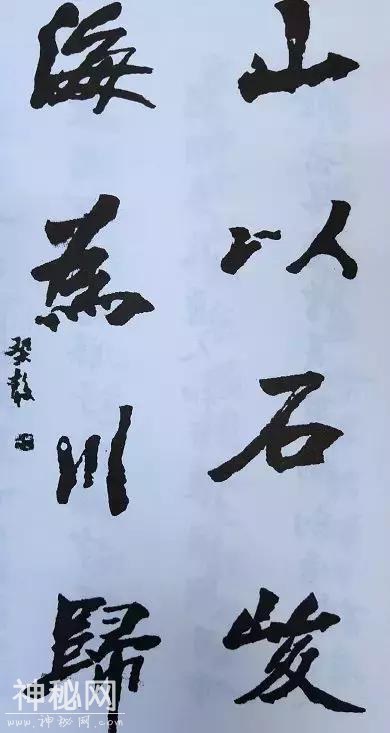 山以石峻
海為川歸
神秘网
www.神秘网.com